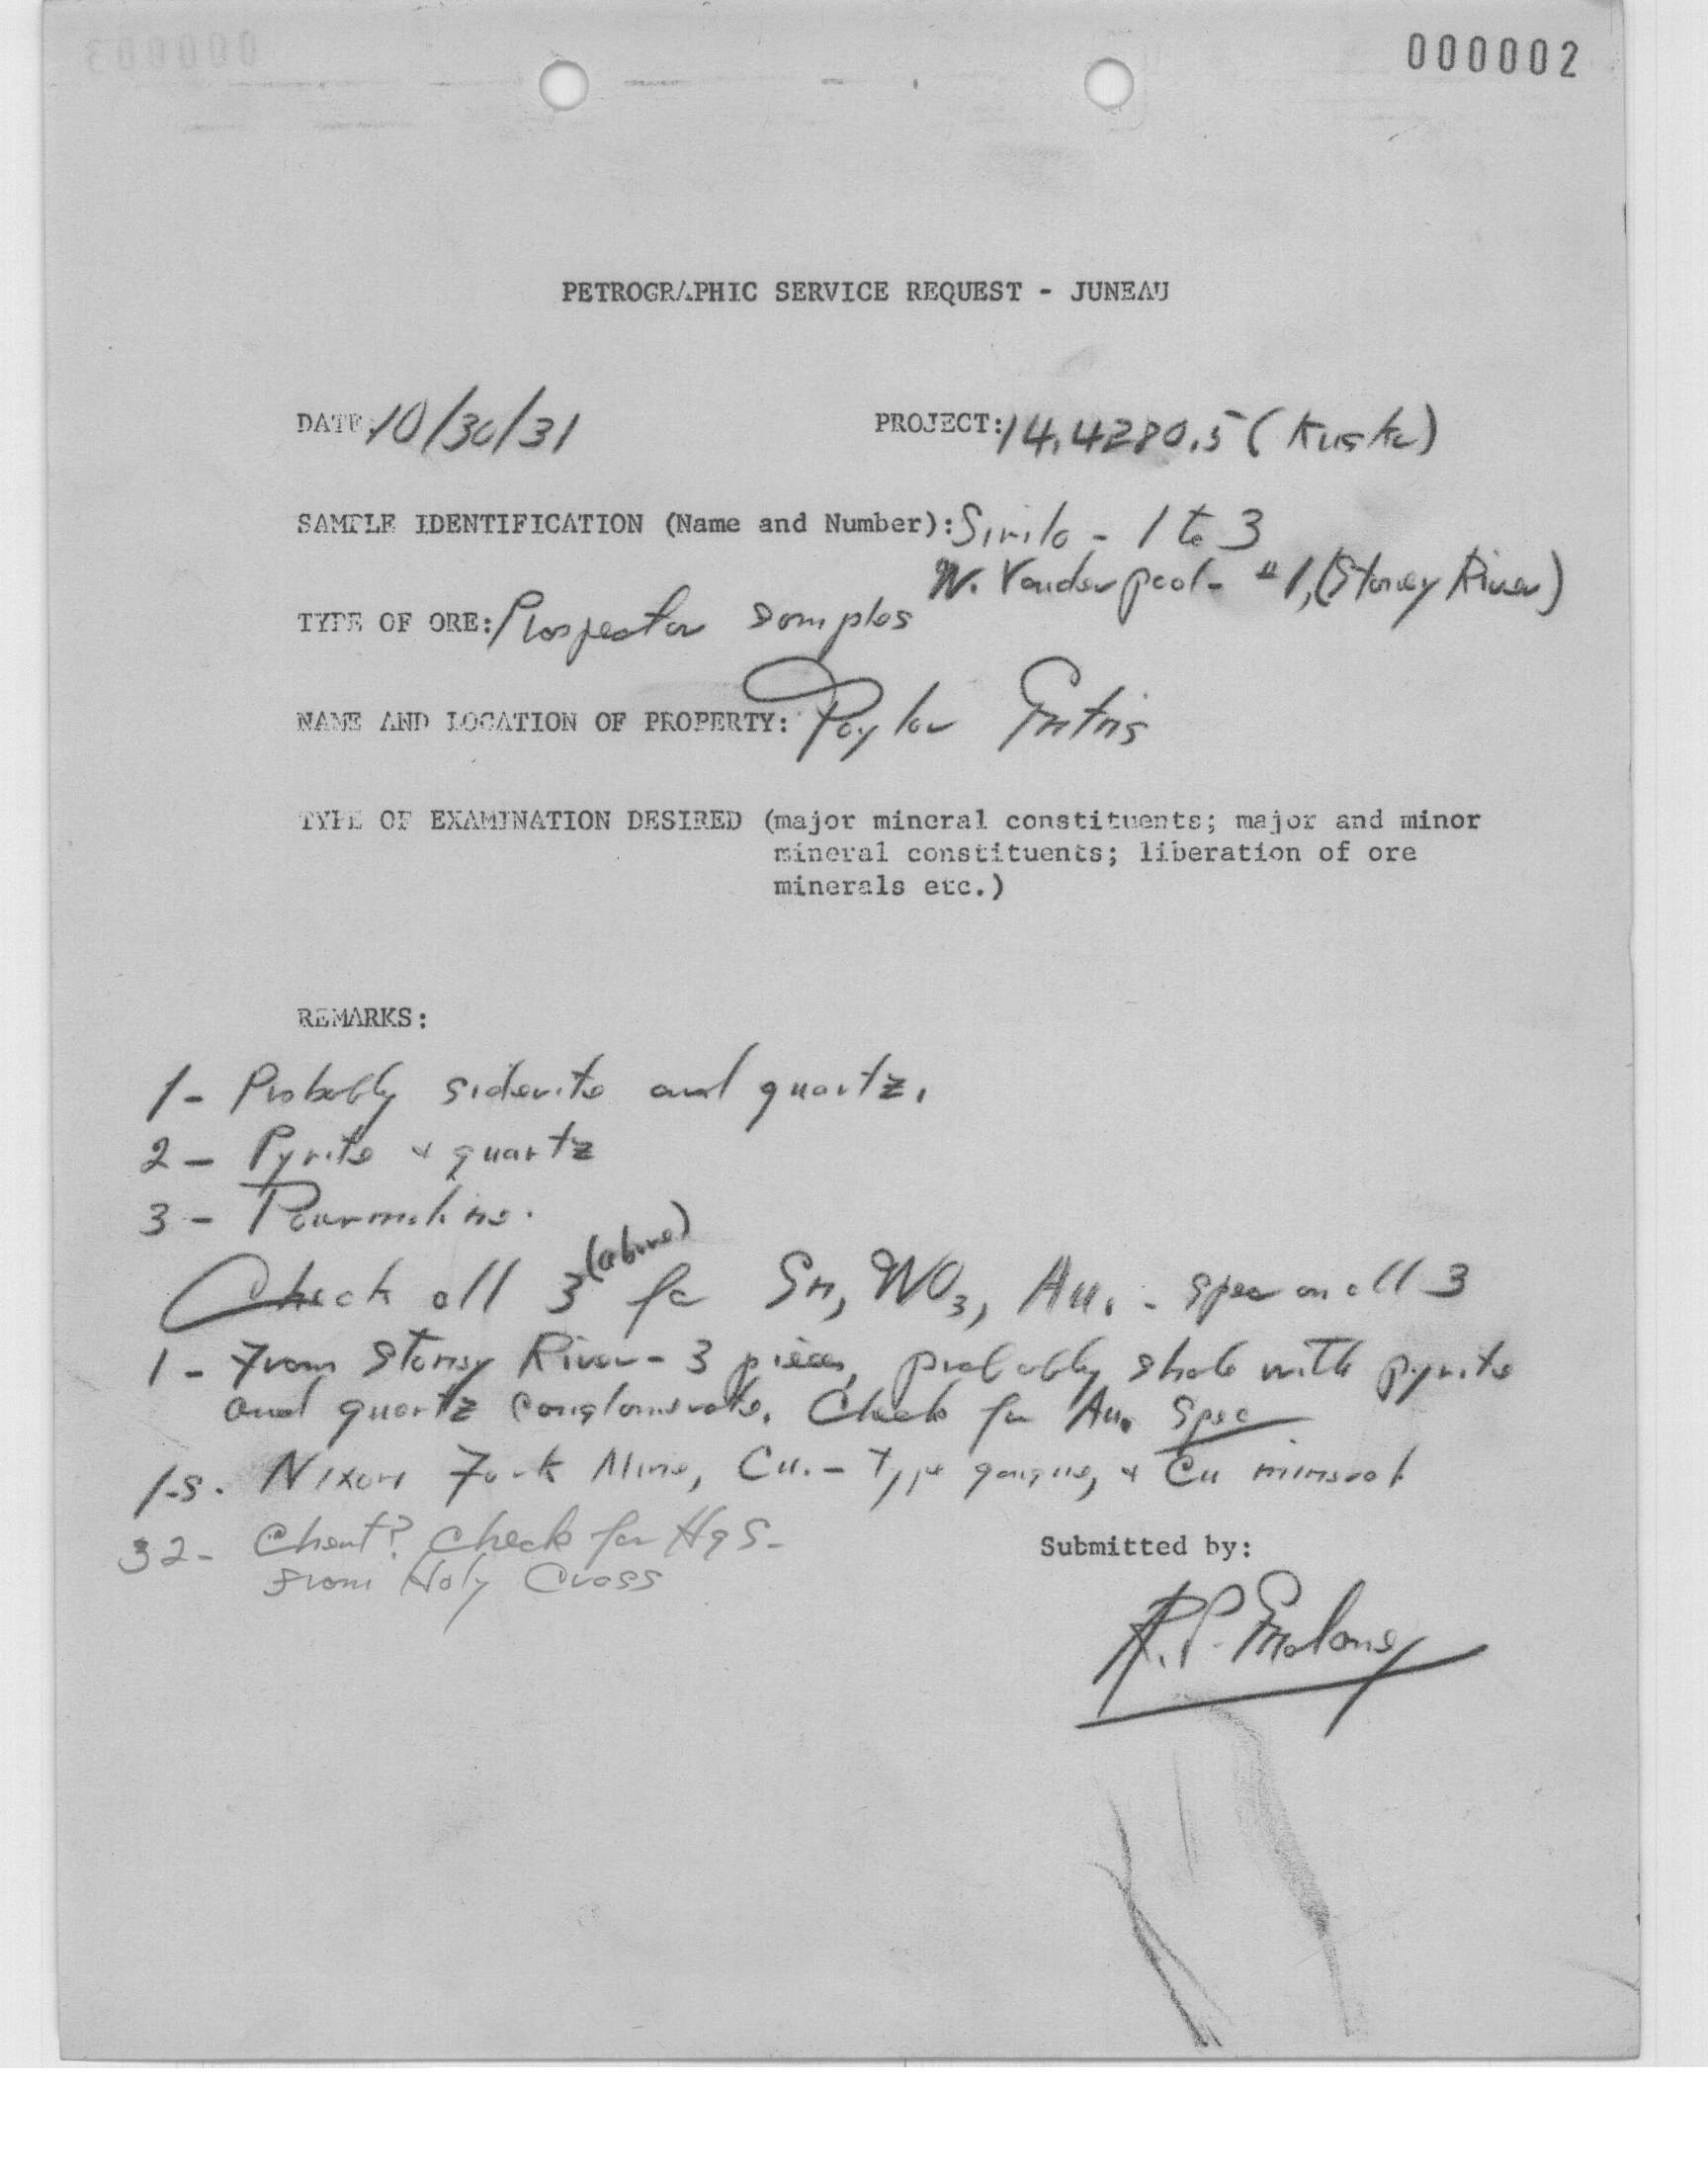 000002
000003
PETROGRAPHIC SERVICE REQUEST - JUNEAU
DATE: 10/30/31 PROJECT: 14.4280.5 (Kusko)
SAMPLE IDENTIFICATION (Name and Number): - 1 to 3
W. Vanderpool - #1, (Stoney River)
TYPE OF ORE: Prospector samples
NAME AND LOCATION OF PROPERTY: Taylor Mtns
TYPE OF EXAMINATION DESIRED (major mineral constituents; major and minor
mineral constituents; liberation of ore
minerals etc.)
REMARKS:
1 - Probably siderite and quartz.
2 - Pyrite + quartz
3 - Tourmaline.
Check all 3 (above) for Sn, WO3, Au. - Spec on all 3
1 - From Stoney River - 3 pieces, probably shale with pyrite
and quartz conglomerate. Check for Au. Spec
1-S. Nixon Fork Mine, Cu. - Type gangue, + Cu mineral
32 - Chert? Check for HgS -
from Holy Cross
Submitted by:
R.P. Maloney